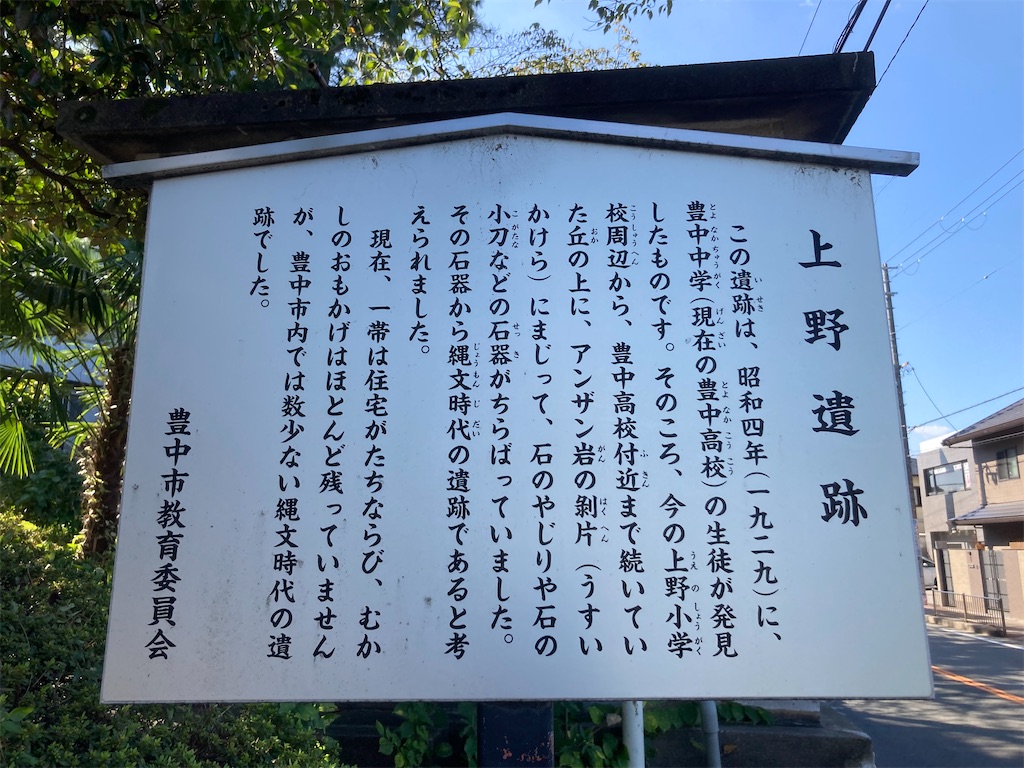 上野遺跡
この遺跡は、昭和四年（一九二九）に、
豊中中学（現在の豊中高校）の生徒が発見
したものです。そのころ、今の上野小学
校周辺から、豊中高校付近まで続いてい
た丘の上に、アンザン岩の剝片（うすい
かけら）にまじって、石のやじりや石の
小刀などの石器がちらばっていました。
その石器から縄文時代の遺跡であると考
えられました。
現在、一帯は住宅がたちならび、むか
しのおもかげはほとんど残っていません
が、豊中市内では数少ない縄文時代の遺
跡でした。
豊中市教育委員会